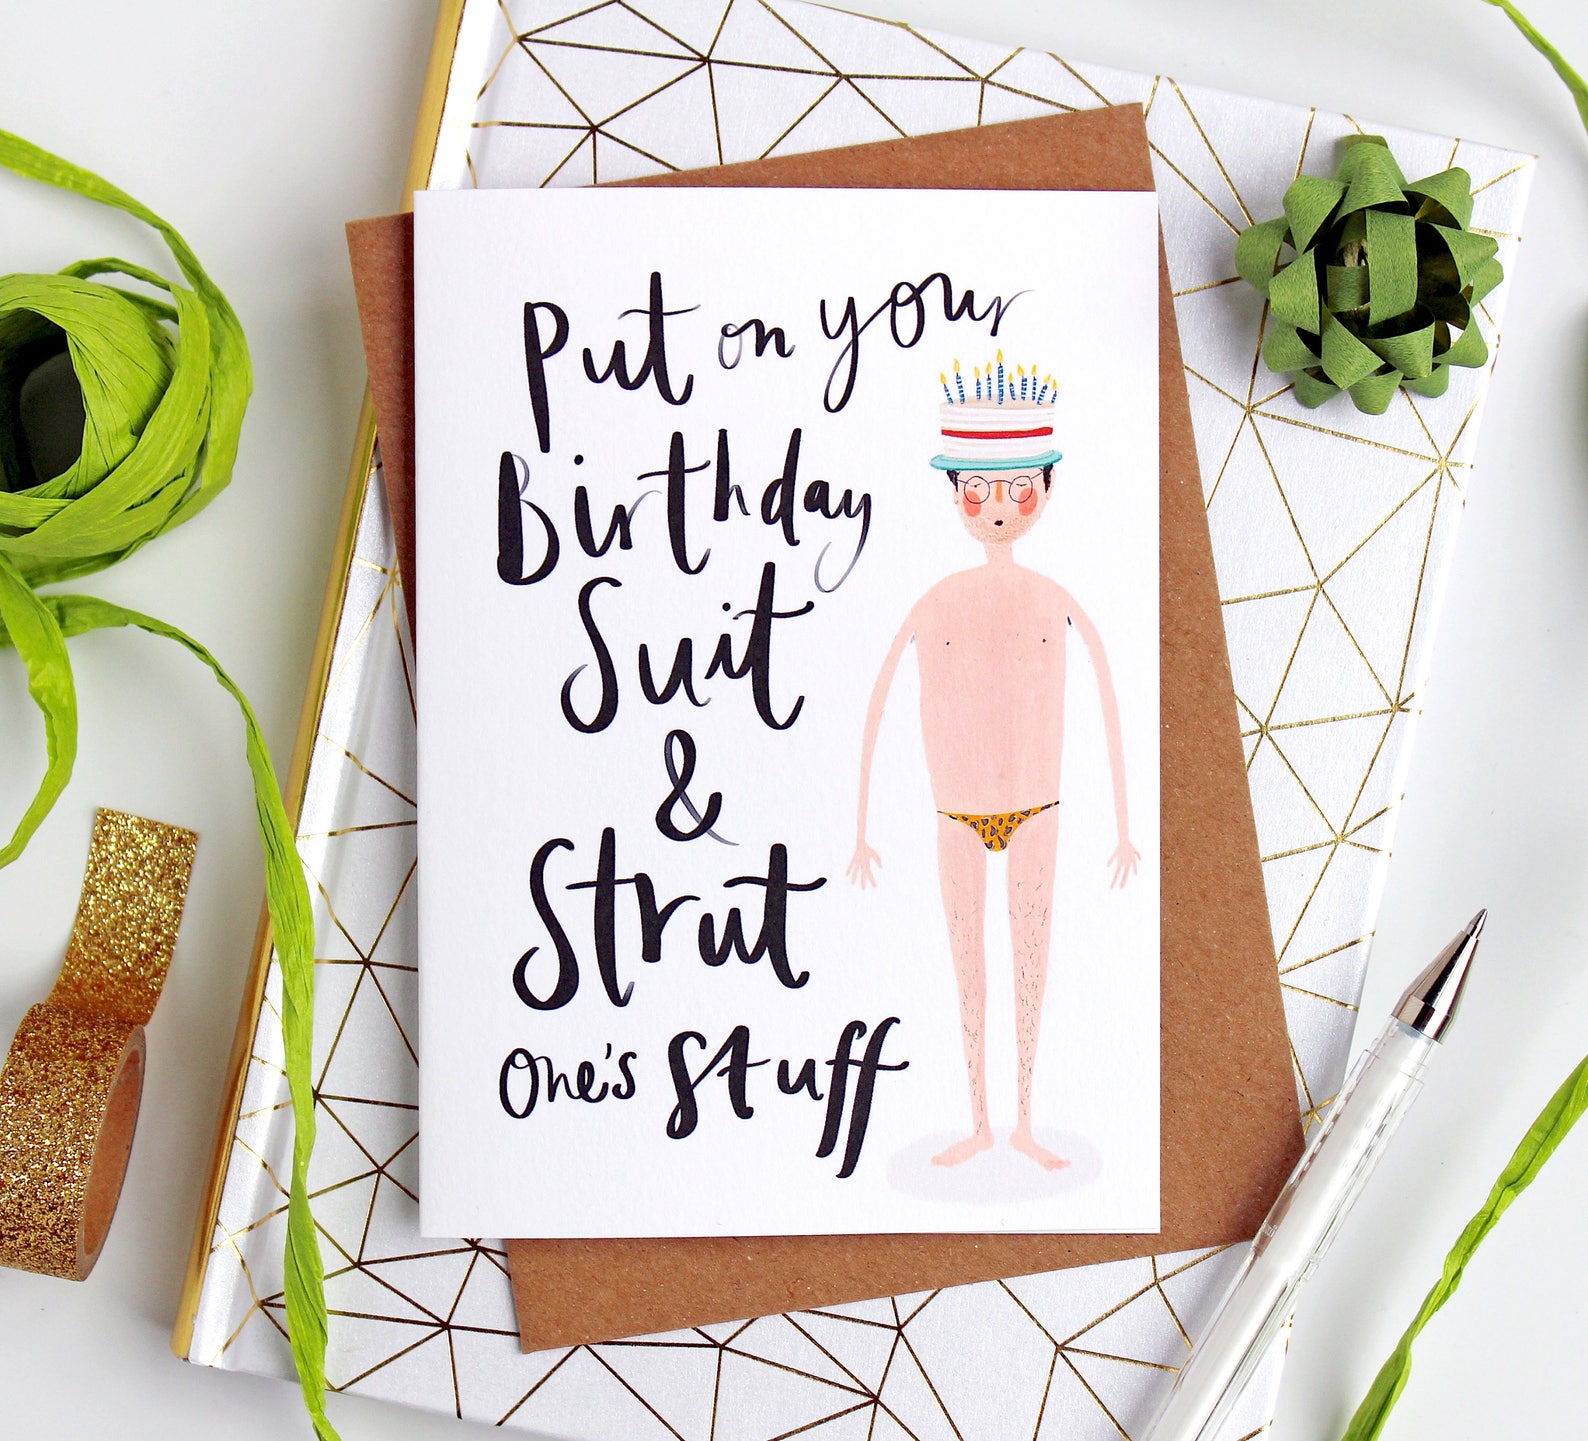 Put on your
Birthday
Suit
&
Strut
one's stuff